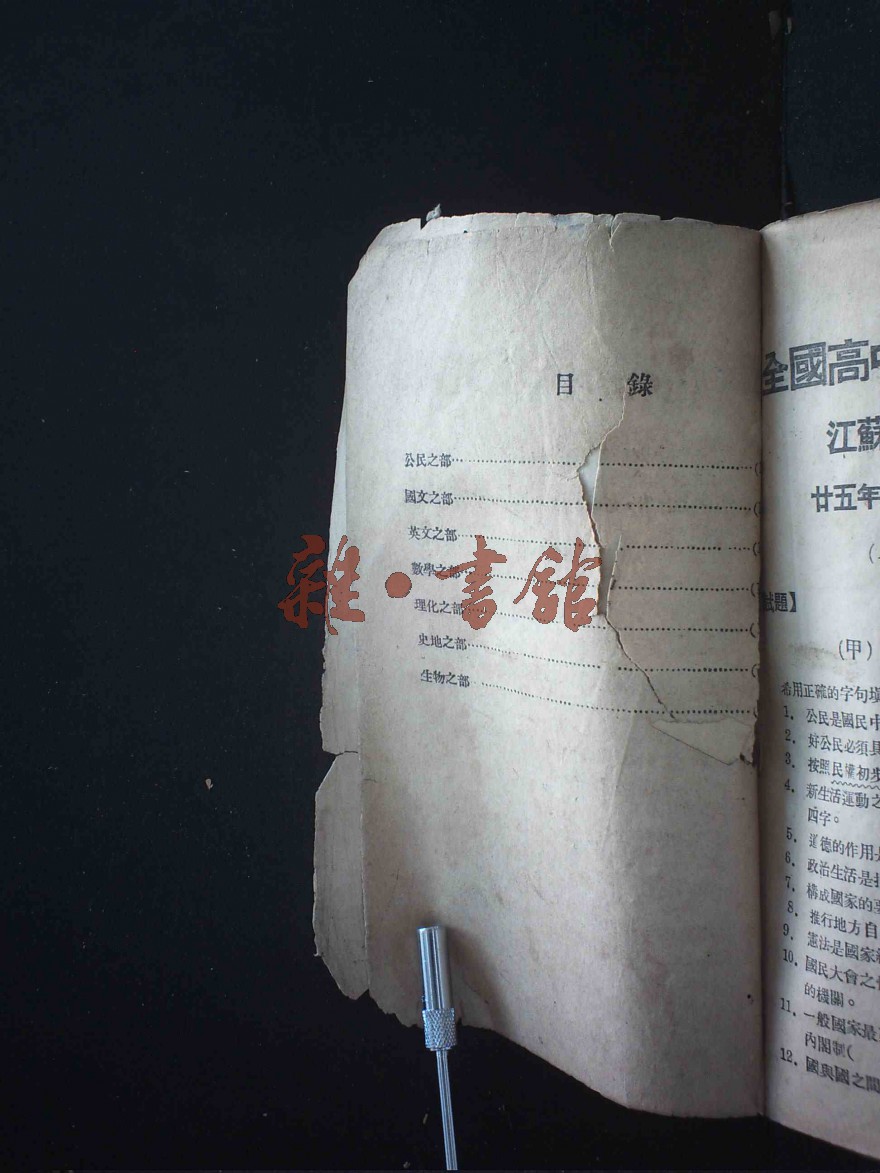 目 錄
公民之部
國文之部
英文之部
數學之部
理化之部
史地之部
生物之部
雜·書館
全國高中
江蘇
廿五年
試題】
(甲)
希用正確的字句填
1. 公民是國民中
2. 好公民必須具
3. 按照民權初步
4. 新生活運動之
四字。
5. 道德的作用是
6. 政治生活是
7. 構成國家的要
8. 推行地方自
9. 憲法是國家
10. 國民大會之
的機關。
11. 一般國家最
內閣制(
12. 國與國之間